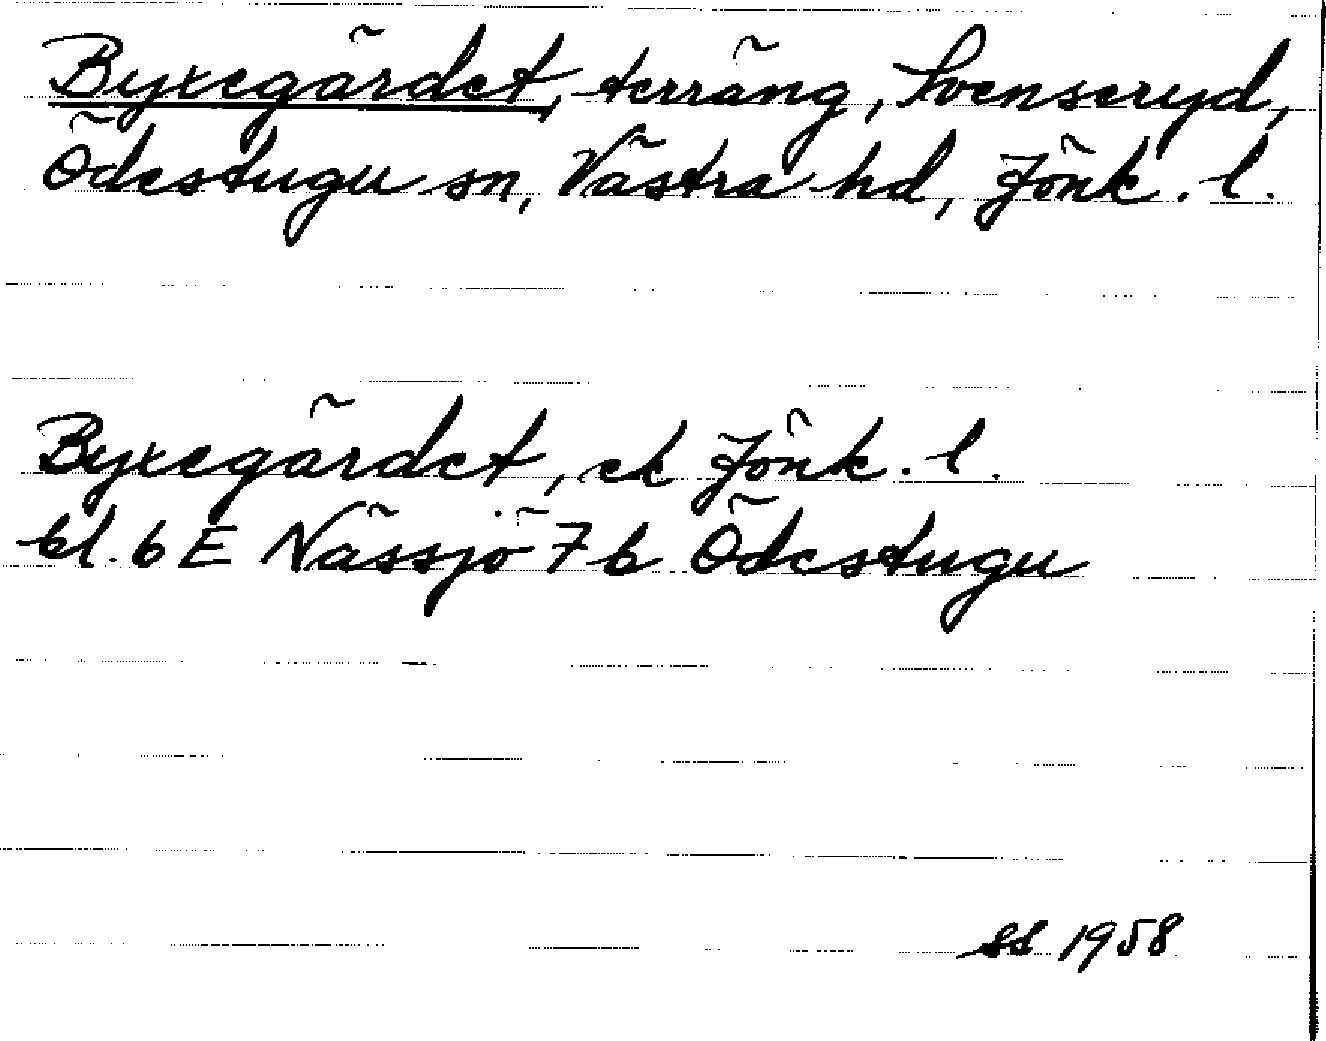 Byxegärdet, terräng, Svenseryd,
Ödestugu sn, Västra hd, Jönk. l.
Byxegärdet, ek Jönk. l.
bl. 6 E Nässjö 7 b Ödestugu
SS 1958